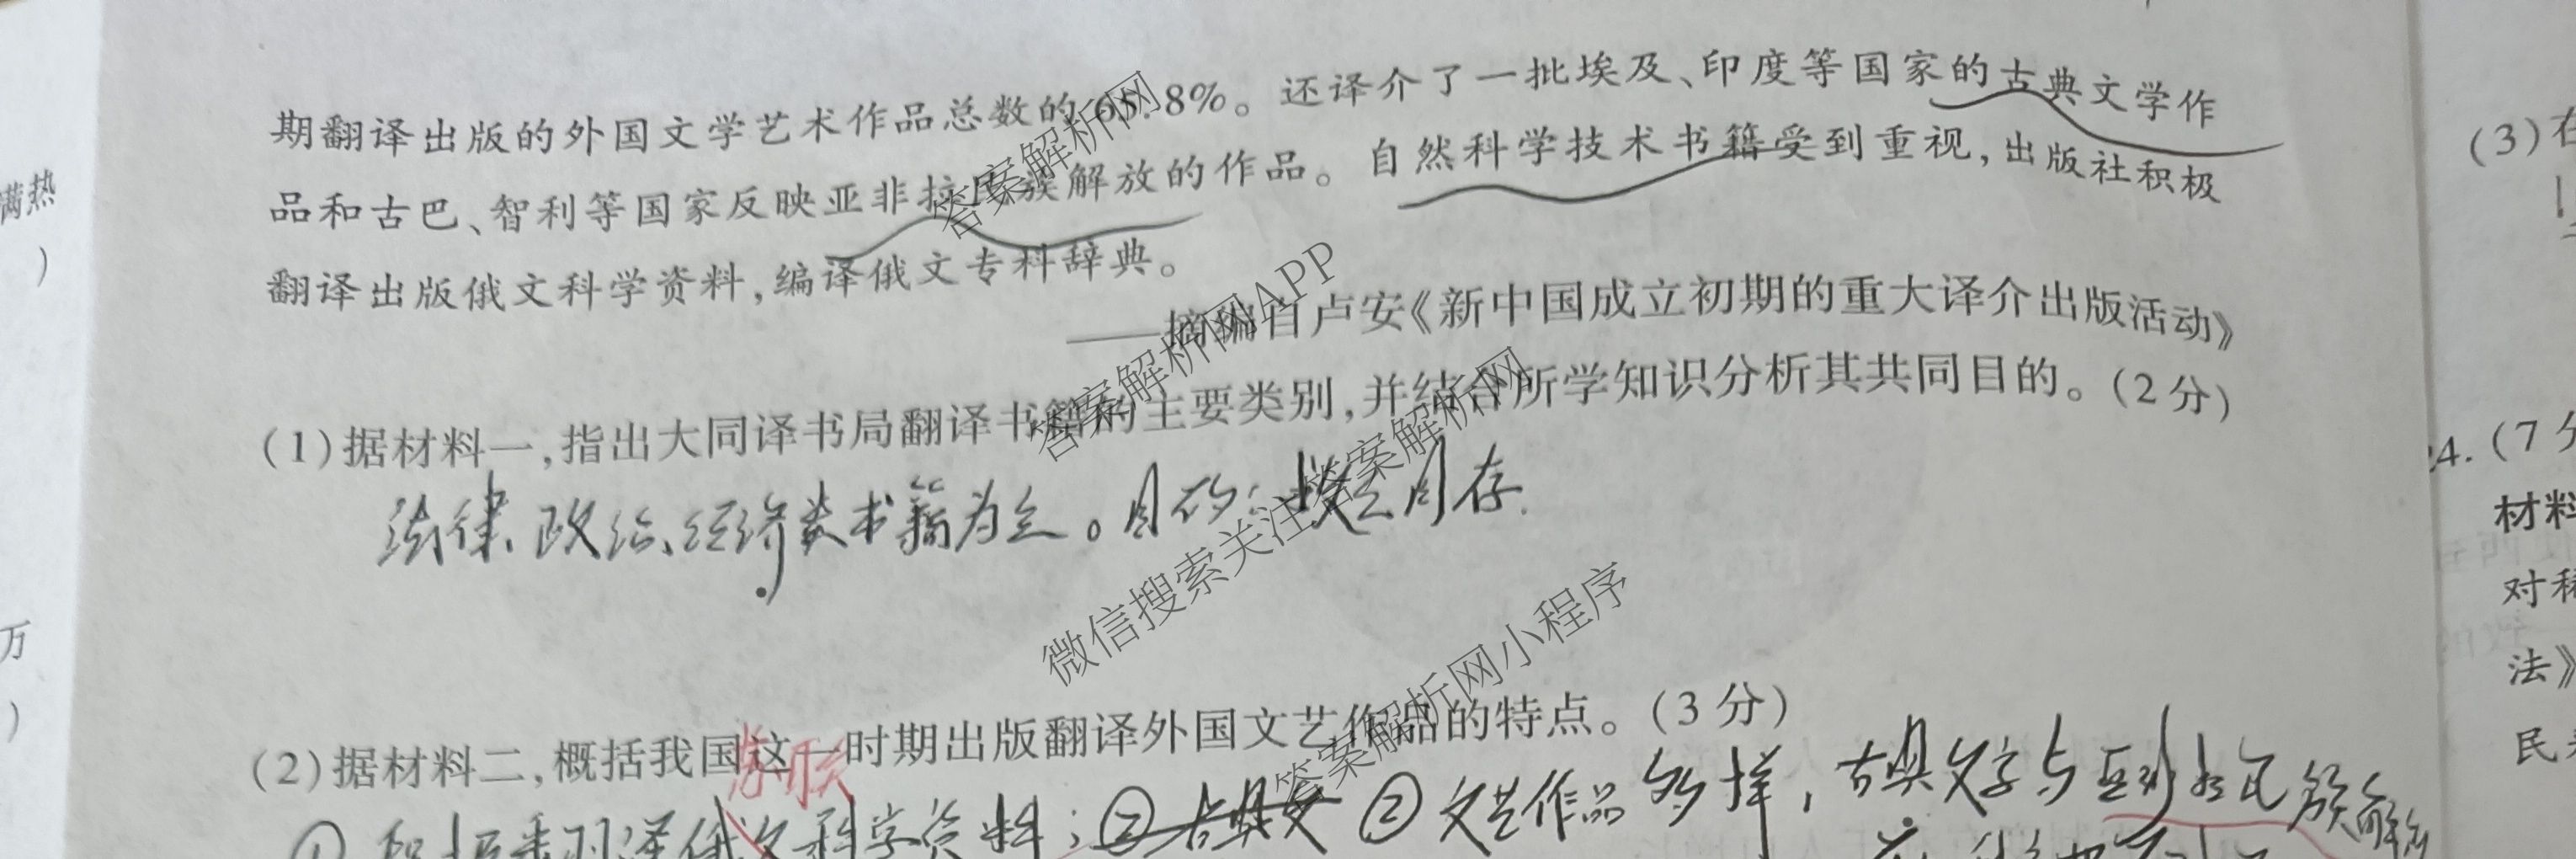 期翻译出版的外国文学艺术作品总数的65.8%。还译介了一批埃及、印度等国家的古典文学作
品和古巴、智利等国家反映亚非拉民族解放的作品。自然科学技术书籍受到重视,出版社积极
翻译出版俄文科学资料,编译俄文专科辞典。
——摘编自卢安《新中国成立初期的重大译介出版活动》
(1)据材料一,指出大同译书局翻译书籍的主要类别,并结合所学知识分析其共同目的。(2分)
法律、政治、经济类书籍为主。目的:救亡图存.
(2)据材料二,概括我国这一时期出版翻译外国文艺作品的特点。(3分)
苏联
翻译俄文科学资料;②古典文 ②文艺作品多样,古典文学与亚非拉民族解放
满热
)
万
)
(3)在
24.(7分
材料
对
法》
民
答案解析网
答案解析网APP
微信搜索关注答案解析网
答案解析网小程序